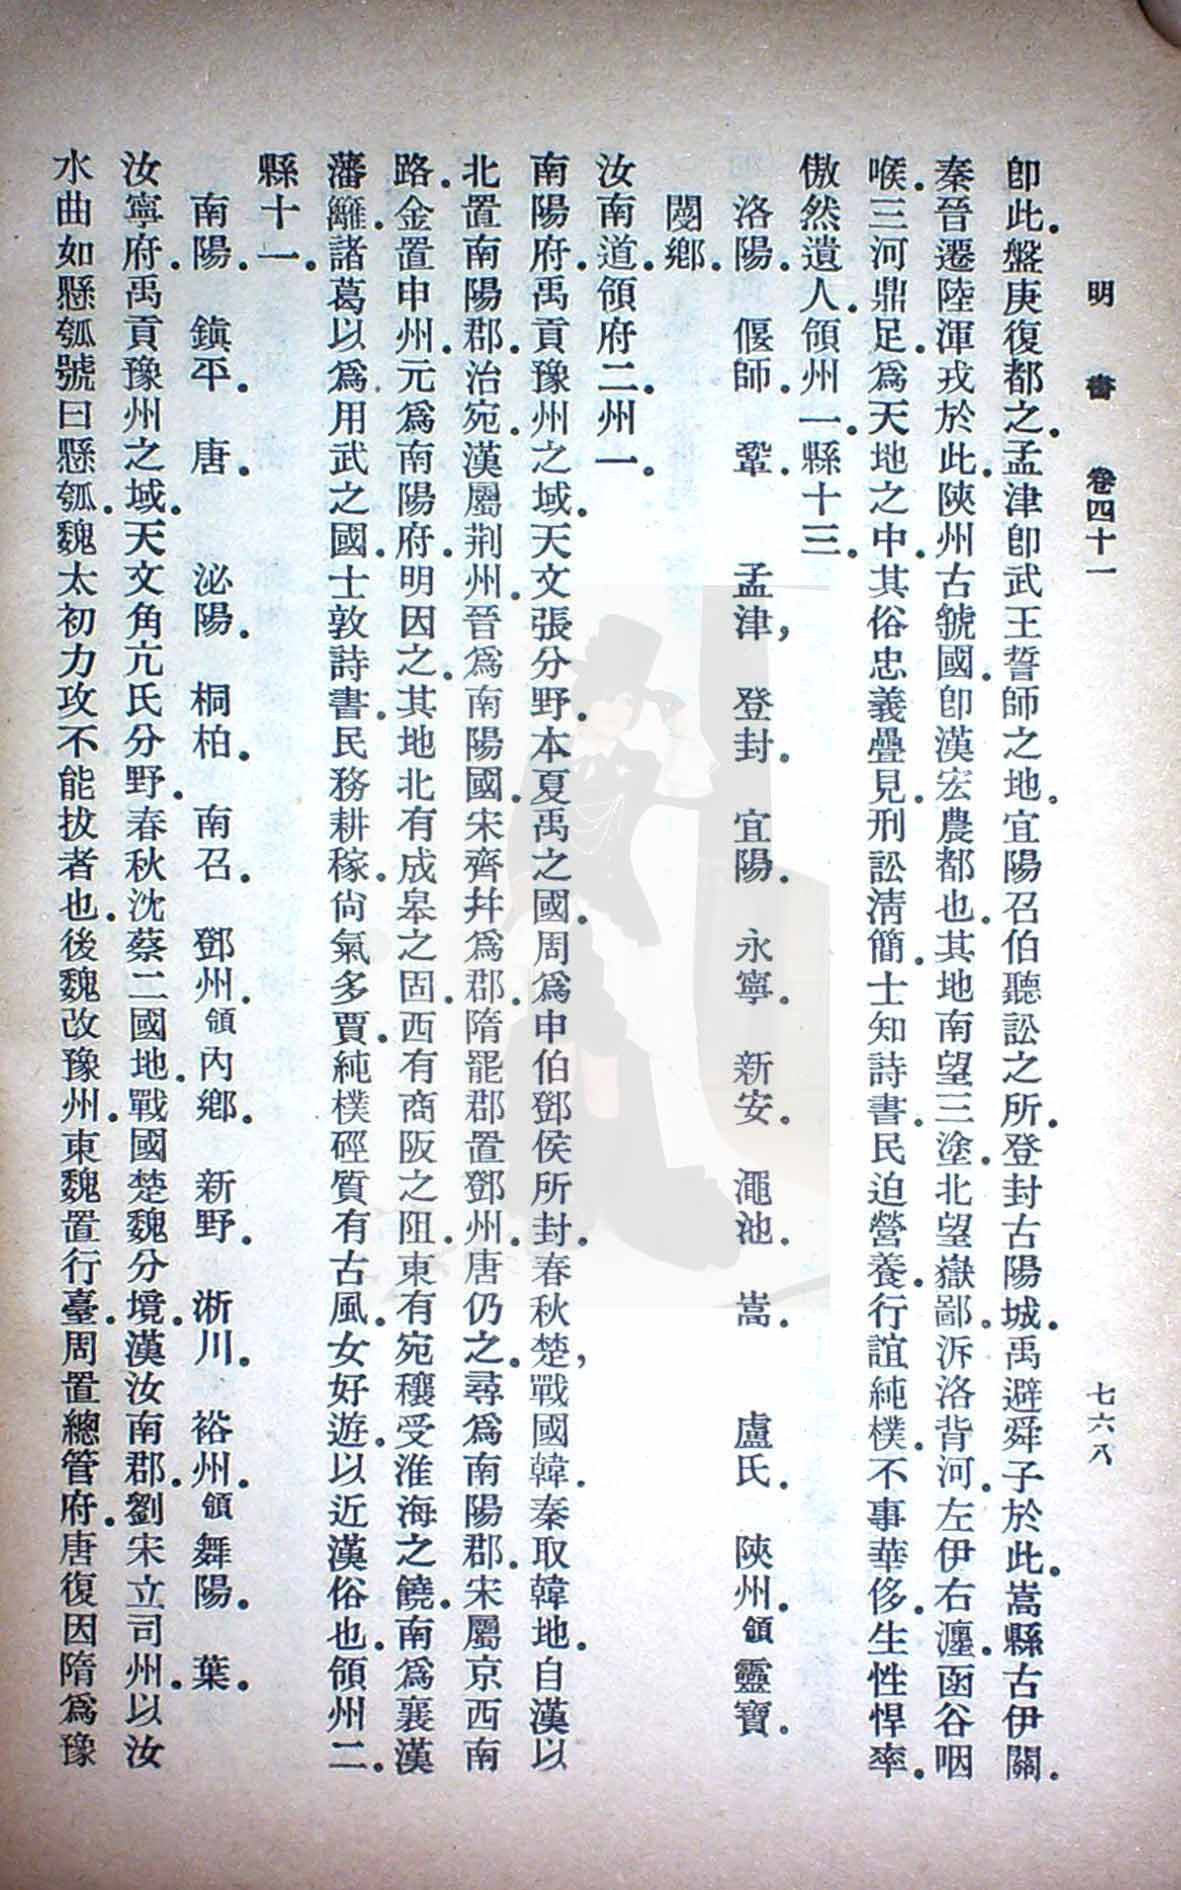 明書 卷四十一 七六八
卽此.盤庚復都之.孟津卽武王誓師之地.宜陽召伯聽訟之所.登封古陽城.禹避舜子於此.嵩縣古伊關.
秦晉遷陸渾戎於此.陝州古虢國.卽漢宏農都也.其地南望三塗.北望嶽鄙.泝洛背河.左伊右瀍.函谷咽
喉.三河鼎足.爲天地之中.其俗忠義疊見.刑訟淸簡.士知詩書.民迫營養.行誼純樸.不事華侈.生性悍率.
傲然遺人.領州一.縣十三.
洛陽. 偃師. 鞏. 孟津, 登封. 宜陽. 永寧. 新安. 澠池. 嵩. 盧氏. 陝州.領靈寶.
閿鄉.
汝南道.領府二.州一.
南陽府.禹貢豫州之域.天文張分野.本夏禹之國.周爲申伯鄧侯所封.春秋楚,戰國韓.秦取韓地.自漢以
北置南陽郡.治宛.漢屬荆州.晉爲南陽國.宋齊幷爲郡.隋罷郡置鄧州.唐仍之.尋爲南陽郡.宋屬京西南
路.金置申州.元爲南陽府.明因之.其地北有成皋之固.西有商阪之阻.東有宛穰受淮海之饒.南爲襄漢
藩籬.諸葛以爲用武之國.士敦詩書.民務耕稼.尙氣多賈.純樸硜質有古風.女好遊.以近漢俗也.領州二.
縣十一.
南陽. 鎭平. 唐. 泌陽. 桐柏. 南召. 鄧州.領內鄉. 新野. 淅川. 裕州.領舞陽. 葉.
汝寧府.禹貢豫州之域.天文角亢氐分野.春秋沈蔡二國地.戰國楚魏分境.漢汝南郡.劉宋立司州.以汝
水曲如懸瓠號曰懸瓠.魏太初力攻不能拔者也.後魏改豫州.東魏置行臺.周置總管府.唐復因隋爲豫